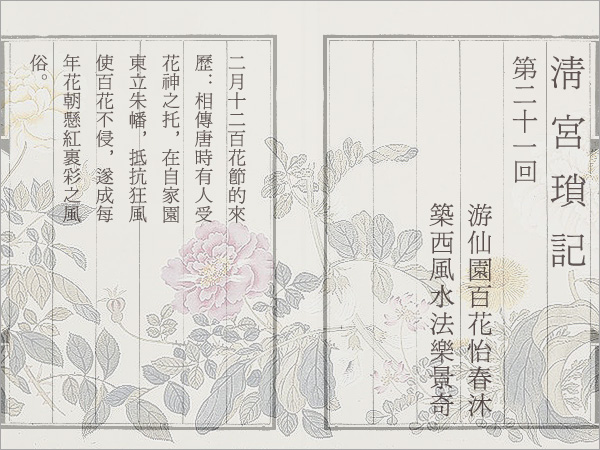 清宮瑣記
第二十一回
游仙園百花怡春沐
築西風水法樂景奇
二月十二百花節的來
歷：相傳唐時有人受
花神之托，在自家園
東立朱幡，抵抗狂風
使百花不侵，遂成每
年花朝懸紅裏彩之風
俗。